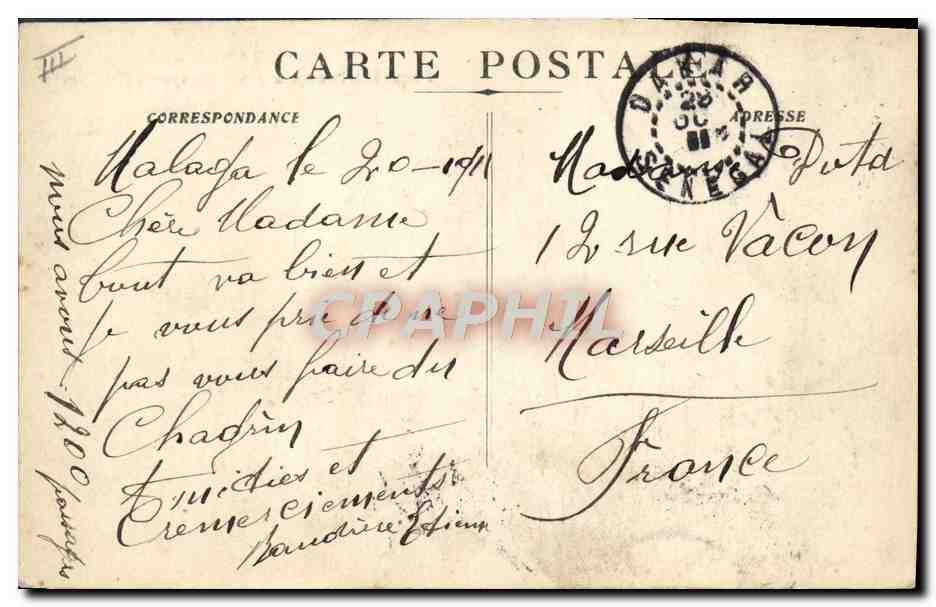 III
CARTE POSTALE
CORRESPONDANCE
ADRESSE
DAKAR
28
OC
11
SENEGAL
Malaga le 20-
Chère Madame
tout va bien et
je vous prie de ne
pas vous faire du
Chagrin
Amitiés et
remerciements
nous avons 1200 passagers
Madame
12 rue Vacon
Marseille
France
CPAPHIL